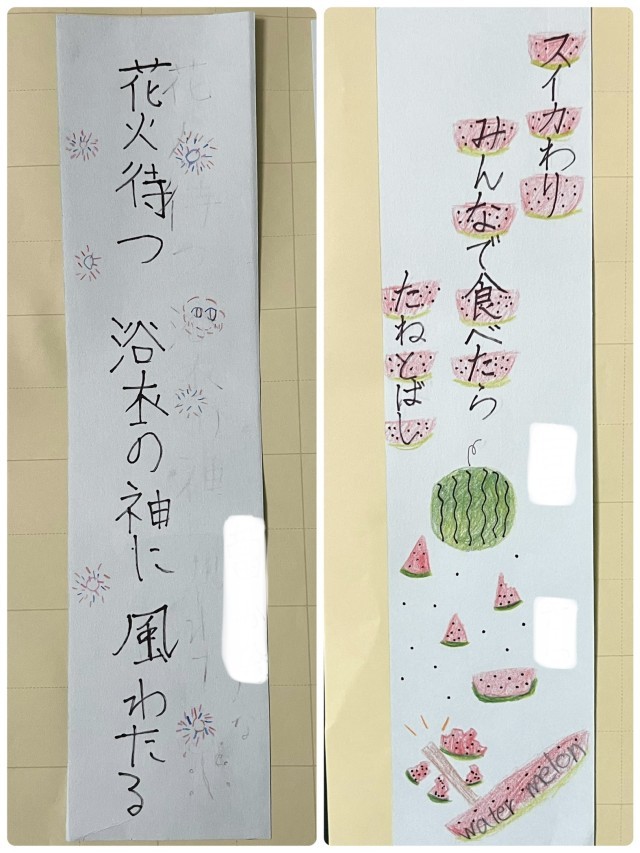 花火待つ 浴衣の神に 風わたる
スイカわり
みんなで食べたら
たねとばし
water melon